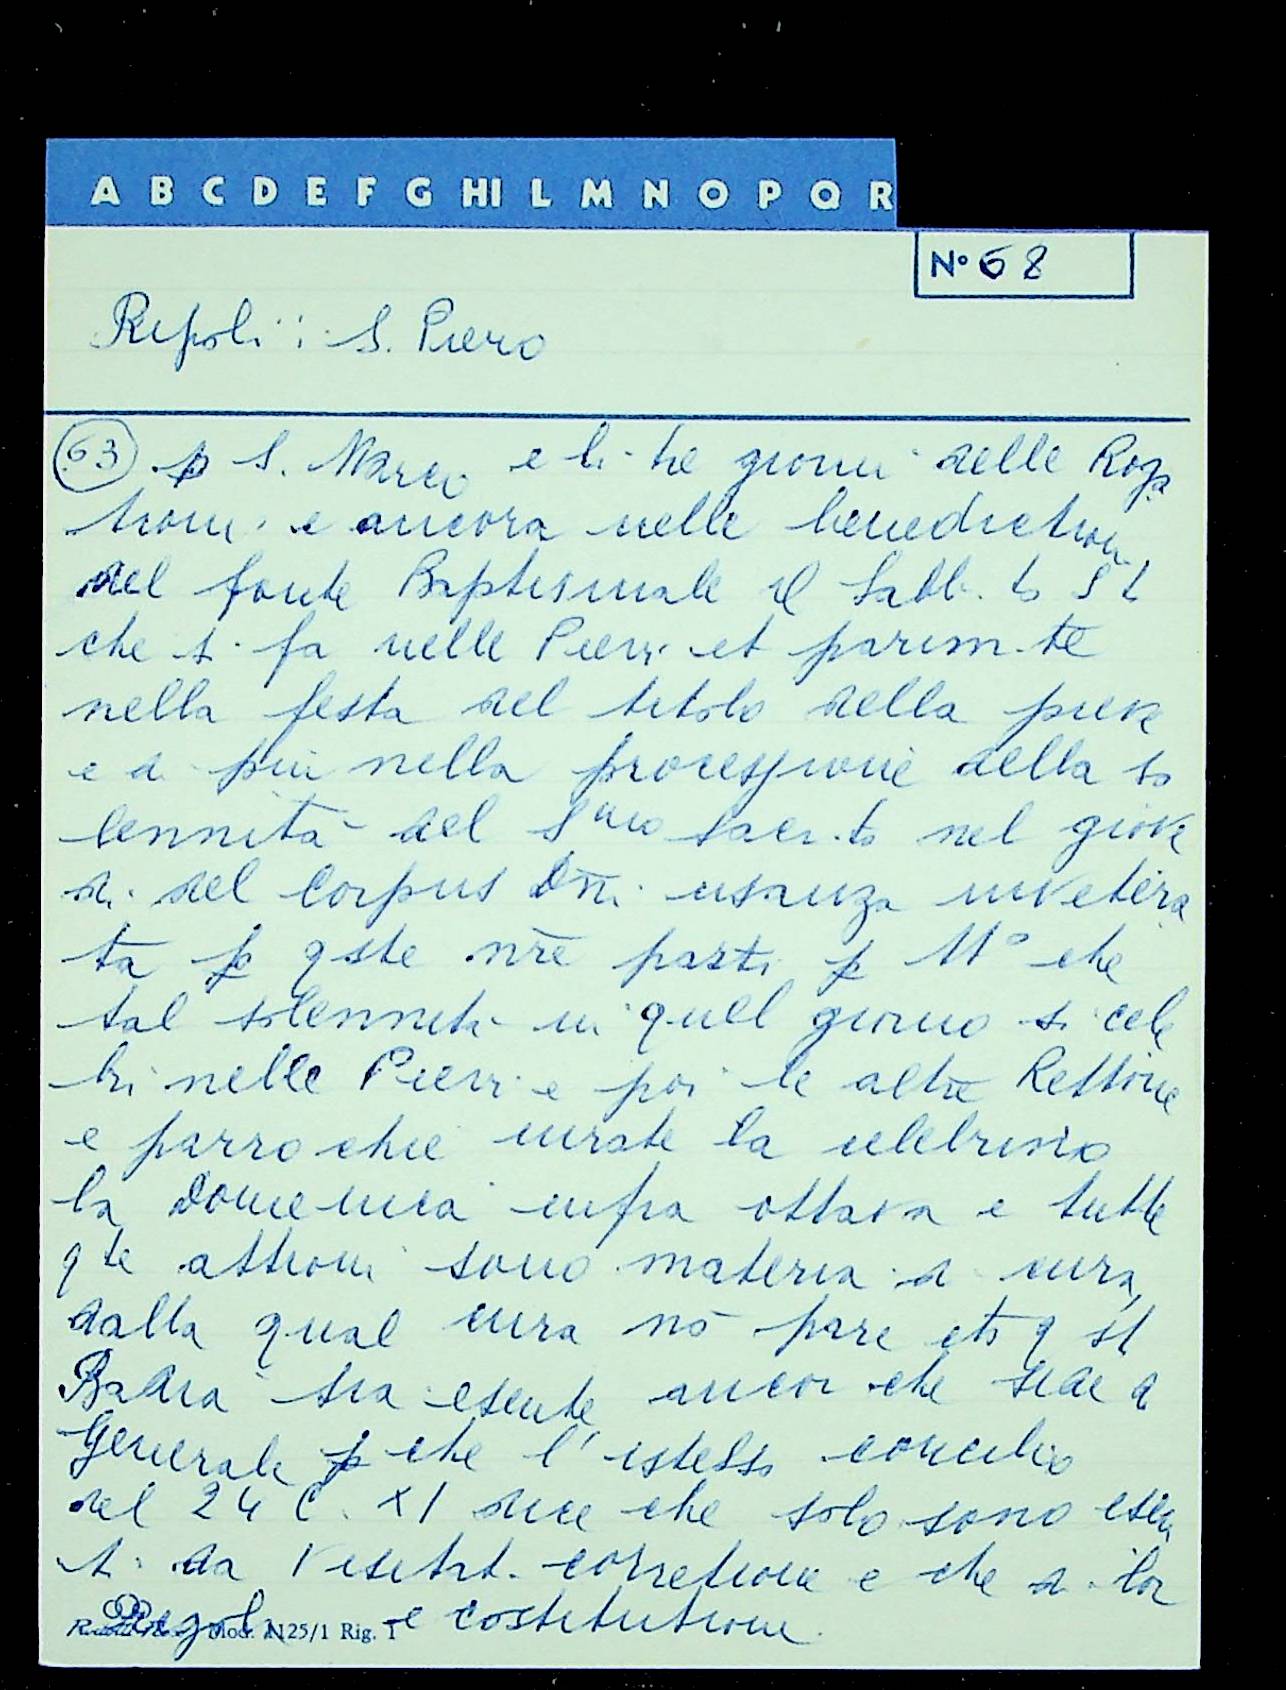 A B C D E F G HI L M N O P Q R
N° 68
Ripoli: S. Piero
63 p S. Marco e li tre giorni delle Roga
tioni e ancora nelle benedictioni
del fonte Baptismale il Sabb.to St
che si fa nelle Pievi et parim.te
nella festa del titolo della pieve
e di piu nella processione della so
lennità del Smo Sacr.to nel giove
di del Corpus Dni usanza invetera
ta p qste nre parti p M° che
tal solennità in quel giorno si cele
bri nelle Pievi e poi le altre Rettorie
e parrochie curate la celebrino
la Domenica infra ottava e tutte
qte attioni sono materia di cura,
dalla qual cura nō pare
Badia sia esente, ancor che
Generale p che l'istesso concilio
del 24 C. XI dice che solo sono esen
ti da Visitat. corretione e che di lor
Regole e costitutione.
Mod. A125/1 Rig. 1